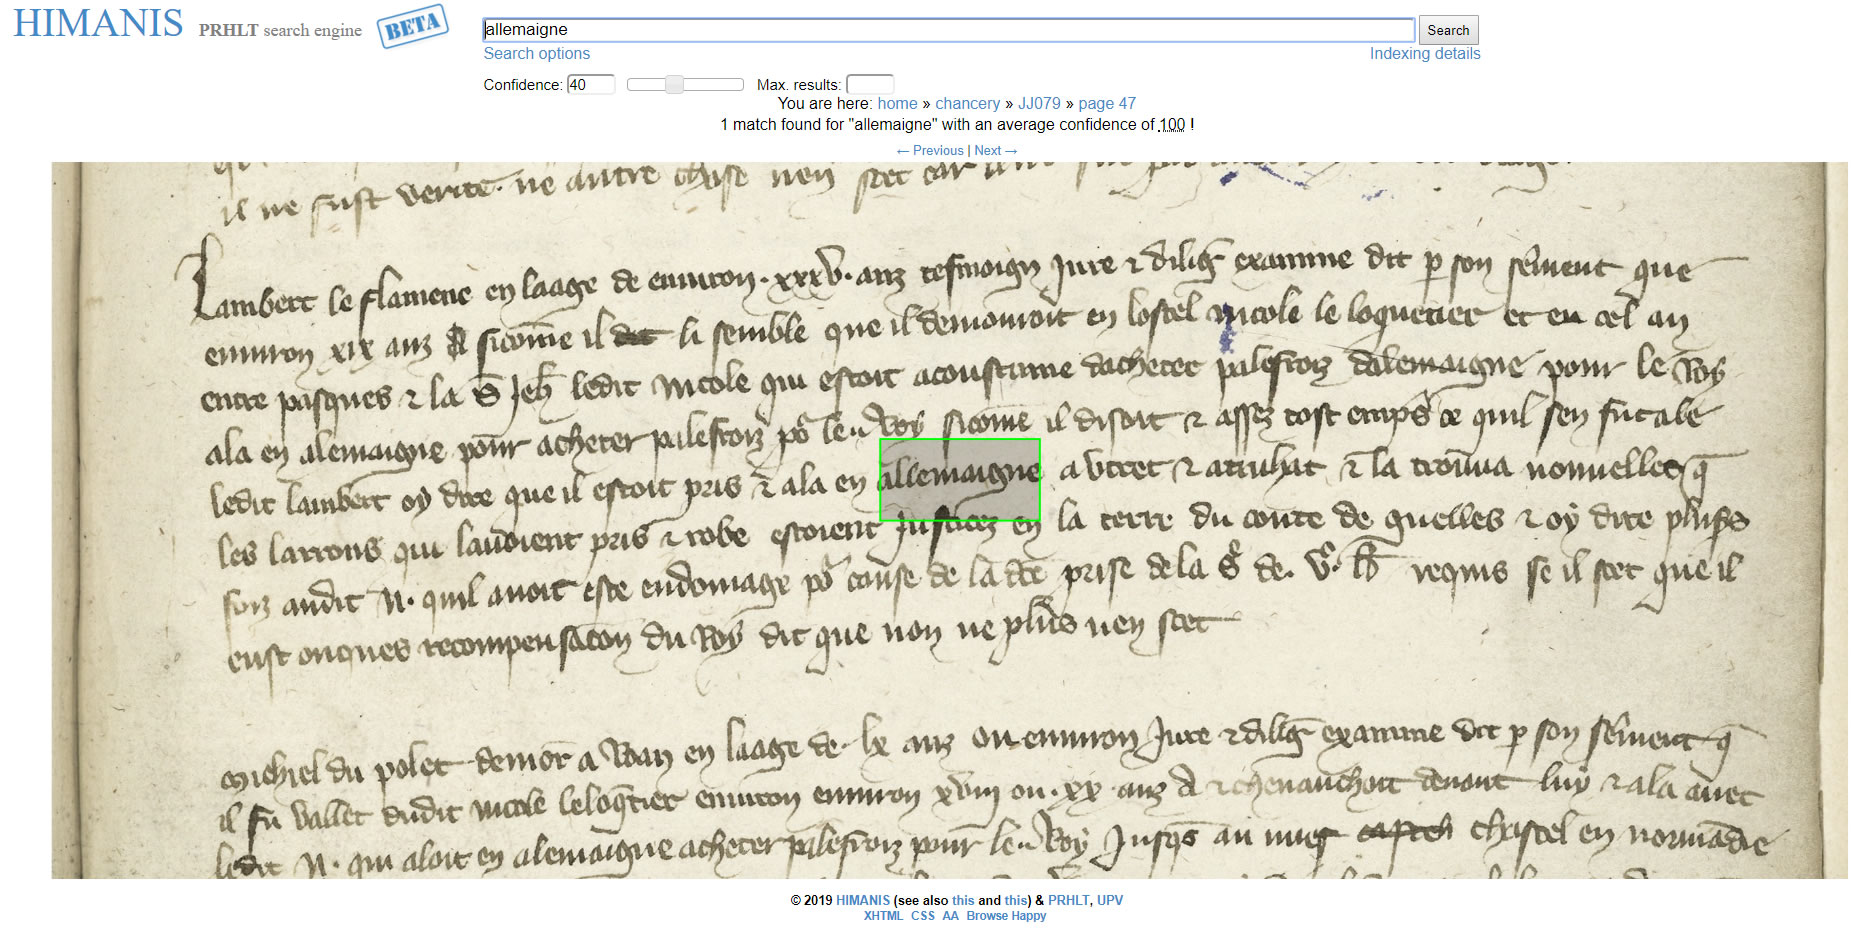 HIMANIS PRHLT search engine BETA
allemaigne
Search
Search options
Indexing details
Confidence: 40 Max. results:
You are here: home » chancery » JJ079 » page 47
1 match found for "allemaigne" with an average confidence of 100 !
← Previous | Next →
il ne fust verite ne autre chose nen scet car
Lambert le flamenc en laage de environ .xxxv. anz tesmoign Jure & dilig examine dit p son sement que
environ xix anz sicome il dit li semble que il demouroit en lostel nicole le loquetier et en cel an
entre pasques & la S Jeh ledit nicole qui estoit acoustume dacheter palefroiz dalemaigne pour le Roy
ala en alemaigne pour acheter palefroiz po le Roy sicome il disoit & assez tost emps ce quil sen fu ale
ledit lambert oy dire que il estoit pris & ala en allemaigne a utret & a & la trouva nouvelles q
les larrons qui lavoient pris & robe estoient Justicez en la terre du conte de guelles & oy dire plus
foiz audit N. quil avoit este endomage po cause de la dce prise de la S de requis se il scet que il
eust onques recompensacon du Roy dit que non ne plus nen scet
Michiel du polet demor a Roan en laage de lx anz ou environ Jure & dilig examine dit p son sement q
il fu vallet dudit nicole le loqtier environ environ xviii ou .xx. anz a & chevauchoit devant luy & ala avec
ledit N. qui aloit en alemaigne acheter palefroiz pour le Roy Jusqs au nuef chastel en normadie
© 2019 HIMANIS (see also this and this) & PRHLT, UPV
XHTML CSS AA Browse Happy